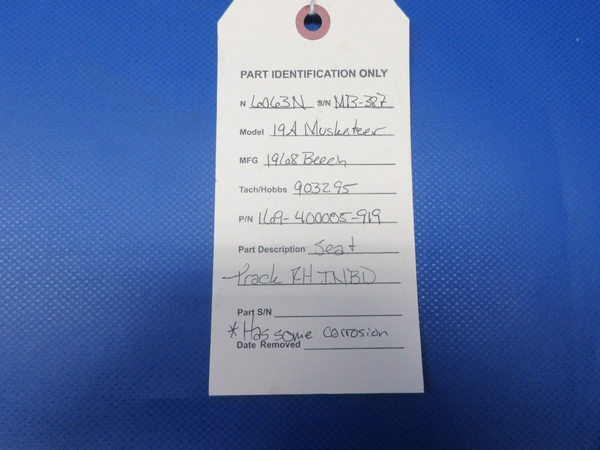 PART IDENTIFICATION ONLY
N 6063N S/N MB-387
Model 19A Musketeer
MFG 1968 Beech
Tach/Hobbs 903295
P/N 169-400005-919
Part Description Seat
track RH INBD
Part S/N
* Has some corrosion
Date Removed